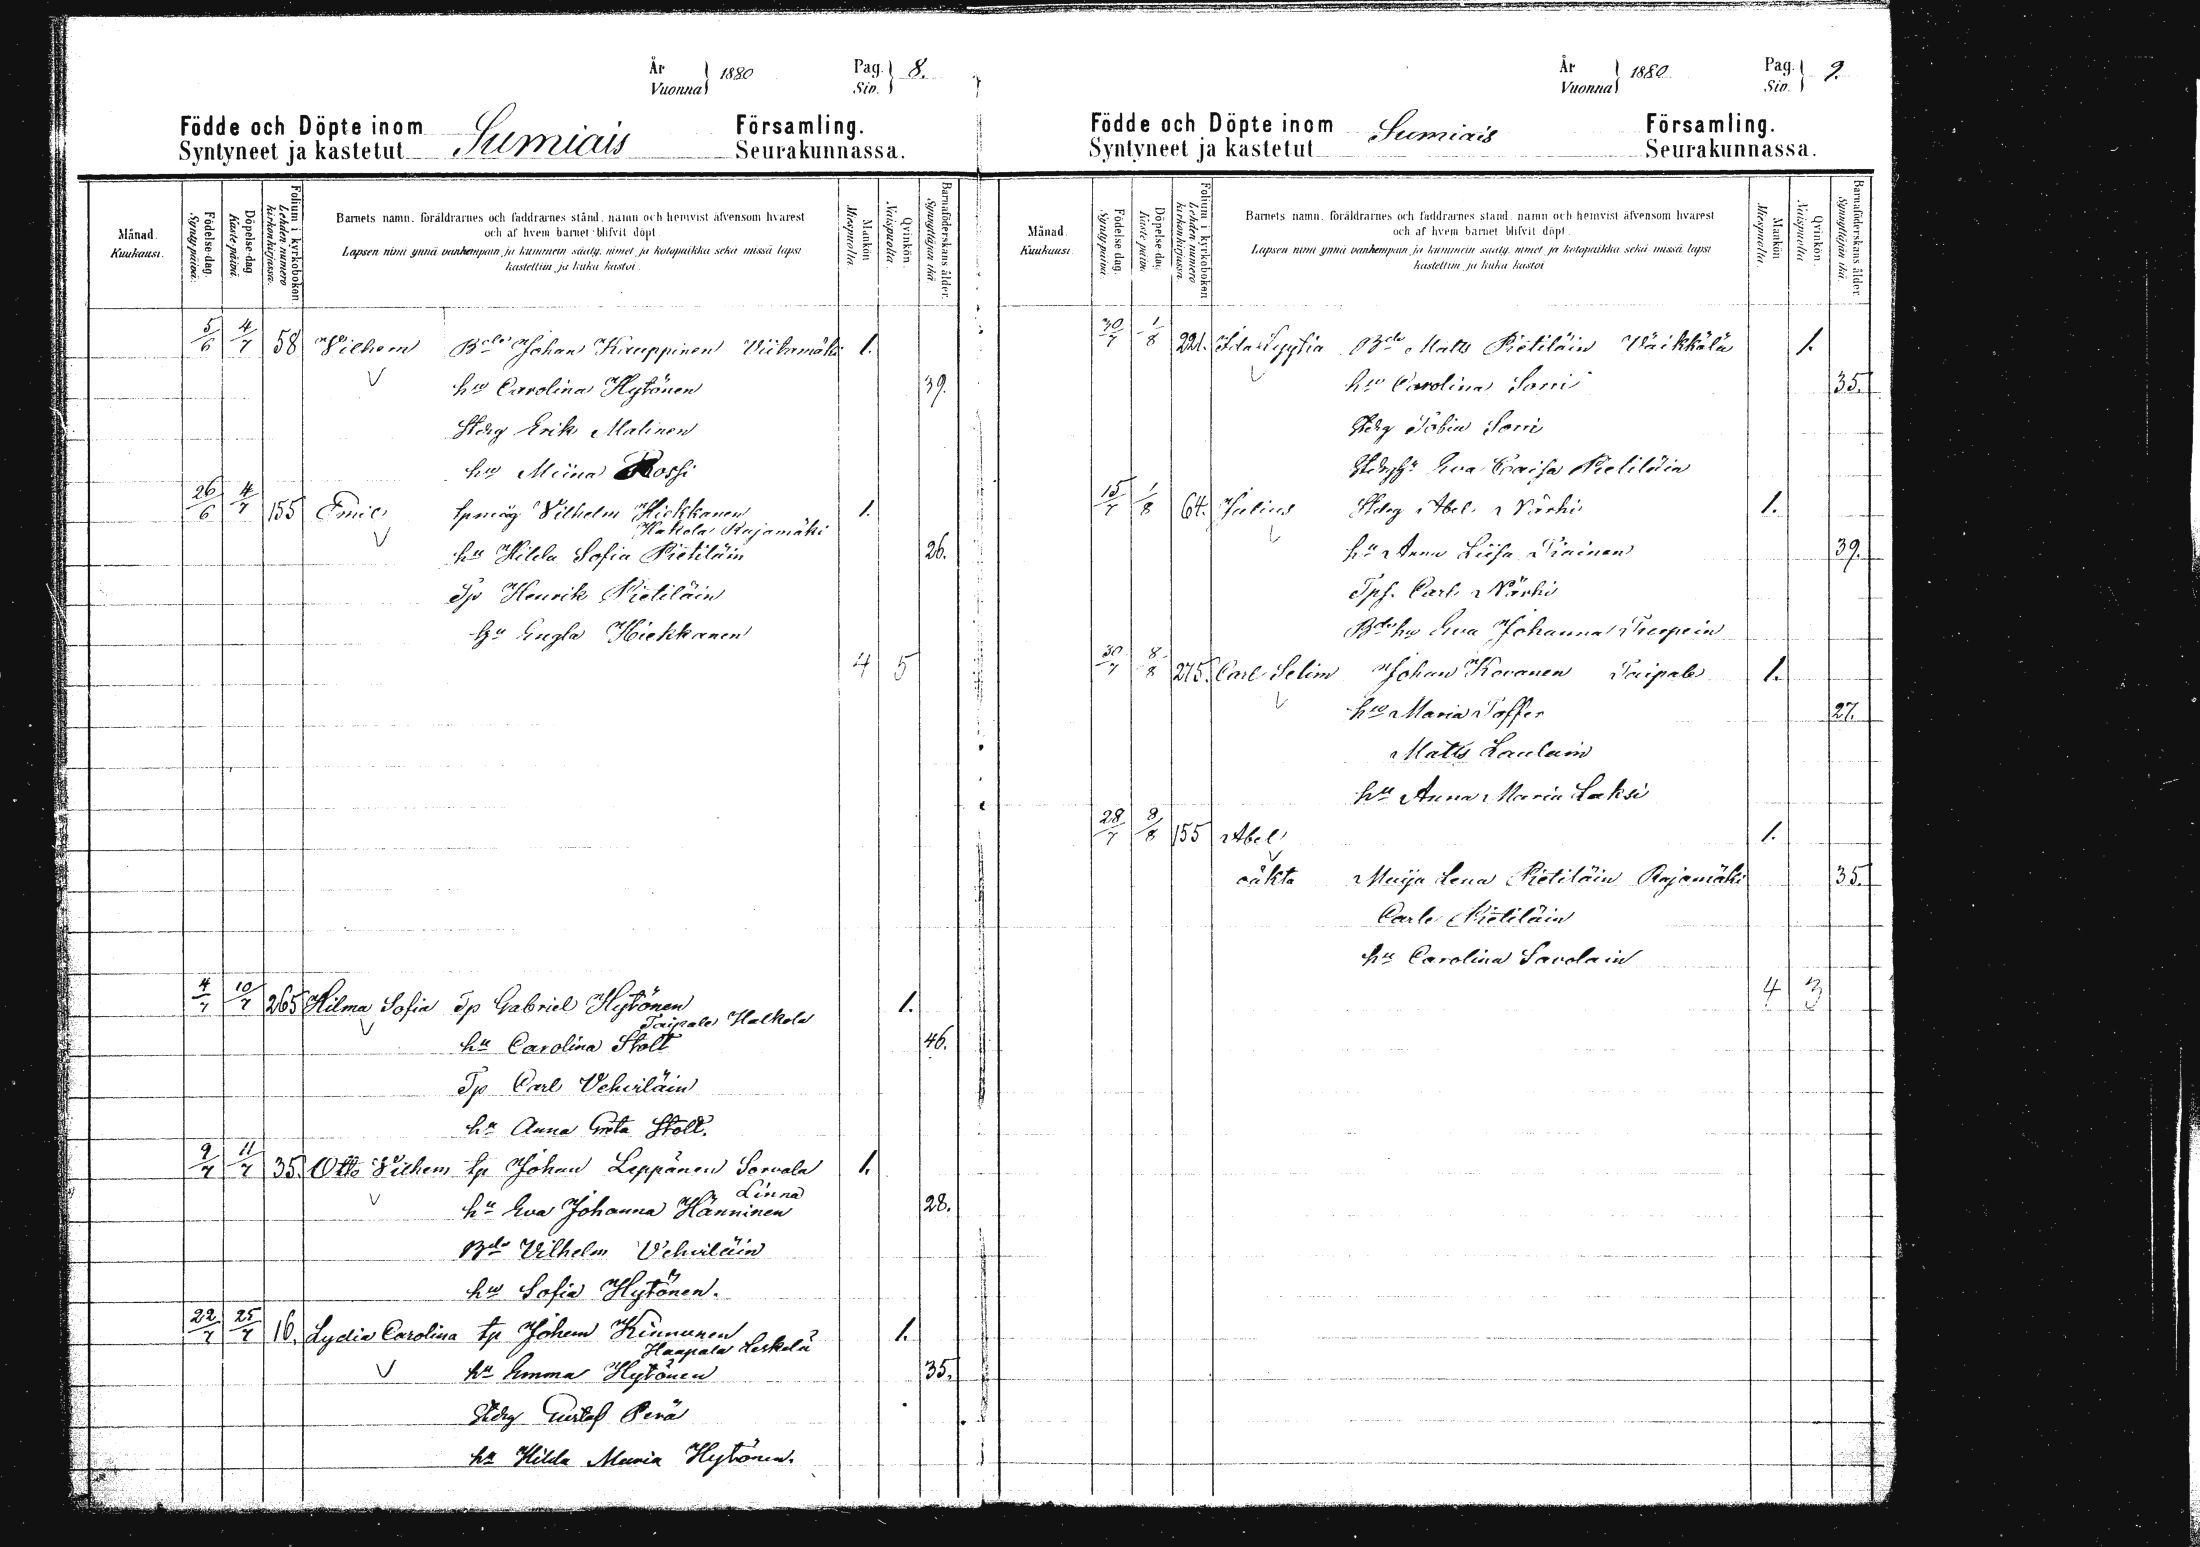 År
Vuonna
1880
Pag.
Siv.
8.
Födde och Döpte inom
Syntyneet ja kastetut
Sumiais
Församling.
Seurakunnassa.
Månad.
Kuukausi.
Födelse-dag.
Syntypäivä.
Döpelse-dag.
Kaste-päivä.
Folium i kyrkoboken
Lehden numero
kirkonkirjassa.
Barnets namn, föräldrarnes och faddrarnes stånd, namn och hemvist äfvensom hvarest
och af hvem barnet blifvit döpt.
Lapsen nimi ynnä vanhempain ja kummein sääty, nimet ja kotopaikka sekä missä lapsi
kastettiin ja kuka kastoi.
Mankön.
Miespuolia.
Qvinkön.
Naispuolia.
Barnaföderskans ålder.
Synnyttäjän ikä.
5/6 4/7 58 Vilhem Bde Johan Kauppinen Viitamäki 1.
hu Carolina Hytönen 39.
Stdrg Erik Malinen
hu Miina Rossi
26/6 4/7 155 Emil Vilhelm Hiekkanen 1.
Hakola Rajamäki
hu Hilda Sofia Pietiläin 26.
Tp Henrik Pietiläin
hu Engla Hiekkanen
4 5
4/7 10/7 265 Hilma Sofia Tp Gabriel Hytönen 1.
Taipale Halkola
hu Carolina Stolt 46.
Tp Carl Vehviläin
hu Anna Greta Stolt.
9/7 11/7 35. Otto Vilhem tp Johan Leppänen Sorvala 1.
Linna
hu Eva Johanna Hänninen 28.
Bde Vilhelm Vehviläin
hu Sofia Hytönen.
22/7 25/7 16. Lydia Carolina tp Johan Kinnunen 1.
Haapala Leskelä
hu Emma Hytönen 35.
Stdrg Gustaf Perä
hu Hilda Maria Hytönen.
År
Vuonna
1880
Pag.
Siv.
9.
Födde och Döpte inom
Syntyneet ja kastetut
Sumiais
Församling.
Seurakunnassa.
Månad.
Kuukausi.
Födelse-dag.
Syntypäivä.
Döpelse-dag.
Kaste-päivä.
Folium i kyrkoboken
Lehden numero
kirkonkirjassa.
Barnets namn, föräldrarnes och faddrarnes stånd, namn och hemvist äfvensom hvarest
och af hvem barnet blifvit döpt.
Lapsen nimi ynnä vanhempain ja kummein sääty, nimet ja kotopaikka sekä missä lapsi
kastettiin ja kuka kastoi
Mankön.
Miespuolia.
Qvinkön.
Naispuolia
Barnaföderskans ålder.
Synnyttäjän ikä.
30/7 1/8 221. Ida Bde Matts Pietiläin Väikkälä 1.
hu Carolina Sorri 35.
Stdrg Tobias Sorri
Eva Caisa Pietiläin
15/7 1/8 64. Julius Stdrg Abel Närhi 1.
hu Anna Liisa Piainen 39.
Carl Närhi
Bde hu Eva Johanna
30/7 8/8 275. Carl Selim Johan Kovanen Taipale 1.
hu Maria Toffer 27.
Matts Laulain
hu Anna Maria Laksi
28/7 8/8 155 Abel 1.
oäkta Maija Lena Pietiläin Rajamäki 35.
Carl Pietiläin
hu Carolina Savolain
4 3